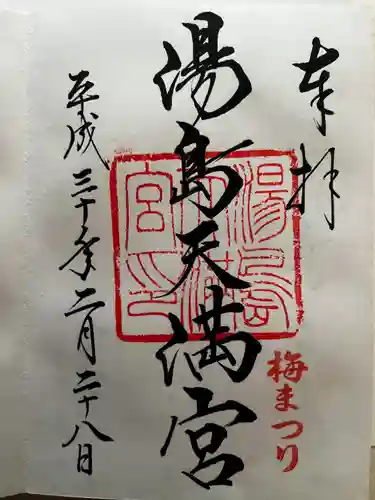 奉拝
湯島天満宮
梅まつり
平成三十年二月二十八日
湯島天満宮之印